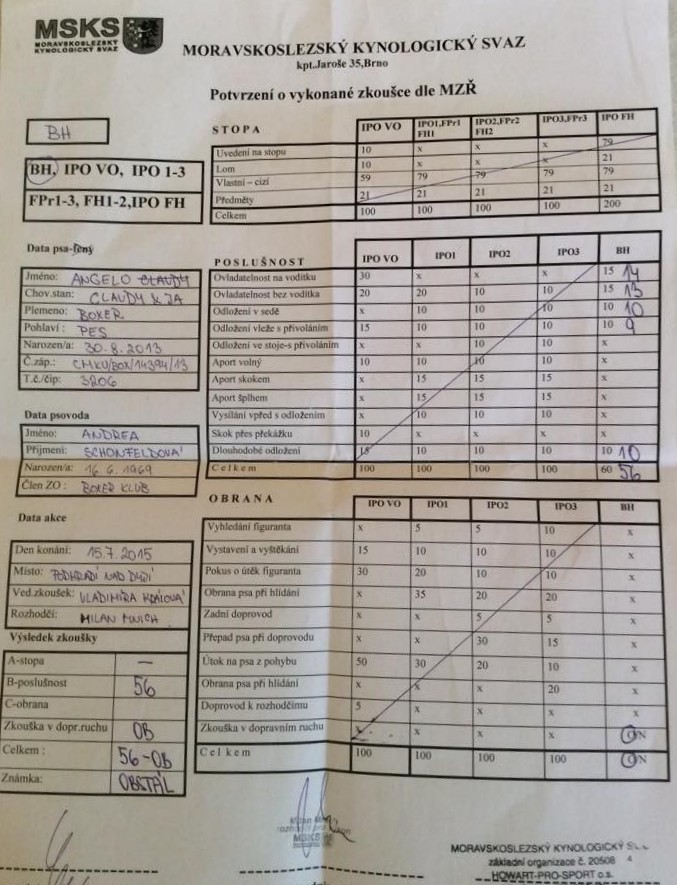 MSKS
MORAVSKOSLEZSKÝ
KYNOLOGICKÝ SVAZ
MORAVSKOSLEZSKÝ KYNOLOGICKÝ SVAZ
kpt.Jaroše 35,Brno
Potvrzení o vykonané zkoušce dle MZŘ
BH
BH, IPO VO, IPO 1-3
FPr1-3, FH1-2,IPO FH
STOPA IPO VO IPO1,FPr1 FH1 IPO2,FPr2 FH2 IPO3,FPr3 IPO FH
Uvedení na stopu 10 x x x 79
Lom 10 x x x 21
Vlastní – cizí 59 79 79 79 79
Předměty 21 21 21 21 21
Celkem 100 100 100 100 200
Data psa-feny
Jméno: ANGELO CLAUDY
Chov.stan: CLAUDY & JA
Plemeno: BOXER
Pohlaví: PES
Narozen/a: 30.8.2013
Č.záp.: CMKU/BOX/14394/13
T.č/čip: 3206
POSLUŠNOST IPO VO IPO1 IPO2 IPO3 BH
Ovladatelnost na vodítku 30 x x x 15 14
Ovladatelnost bez vodítka 20 20 10 10 15 13
Odložení v sedě x 10 10 10 10 10
Odložení vleže s přivoláním 15 10 10 10 10 9
Odložení ve stoje-s přivoláním x x 10 10 x
Aport volný 10 10 10 10 x
Aport skokem x 15 15 15 x
Aport šplhem x 15 15 15 x
Vysílání vpřed s odložením x 10 10 10 x
Skok přes překážku 10 x x x x
Dlouhodobé odložení 15 10 10 10 10 10
Celkem 100 100 100 100 60 56
Data psovoda
Jméno: ANDREA
Příjmení: SCHONFELDOVÁ
Narozen/a: 16.6.1969
Člen ZO : BOXER KLUB
Data akce
Den konání: 15.7.2015
Místo: PODHRADÍ NAD DYJÍ
Ved.zkoušek: VLADIMÍRA KRÁLOVÁ
Rozhodčí: MILAN MNICH
OBRANA IPO VO IPO1 IPO2 IPO3 BH
Vyhledání figuranta x 5 5 10 x
Vystavení a vyštěkání 15 10 10 10 x
Pokus o útěk figuranta 30 20 10 10 x
Obrana psa při hlídání x 35 20 20 x
Zadní doprovod x x 5 5 x
Přepad psa při doprovodu x x 30 15 x
Útok na psa z pohybu 50 30 20 10 x
Obrana psa při hlídání x x x 20 x
Doprovod k rozhodčímu 5 x x x x
Zkouška v dopravním ruchu x x x x O/N
Celkem 100 100 100 100 O/N
Výsledek zkoušky
A-stopa —
B-poslušnost 56
C-obrana
Zkouška v dopr.ruchu OB
Celkem : 56-OB
Známka: OBSTÁL
MSKS
MORAVSKOSLEZSKÝ KYNOLOGICKÝ
základní organizace č. 20508
HOWART-PRO-SPORT o.s.